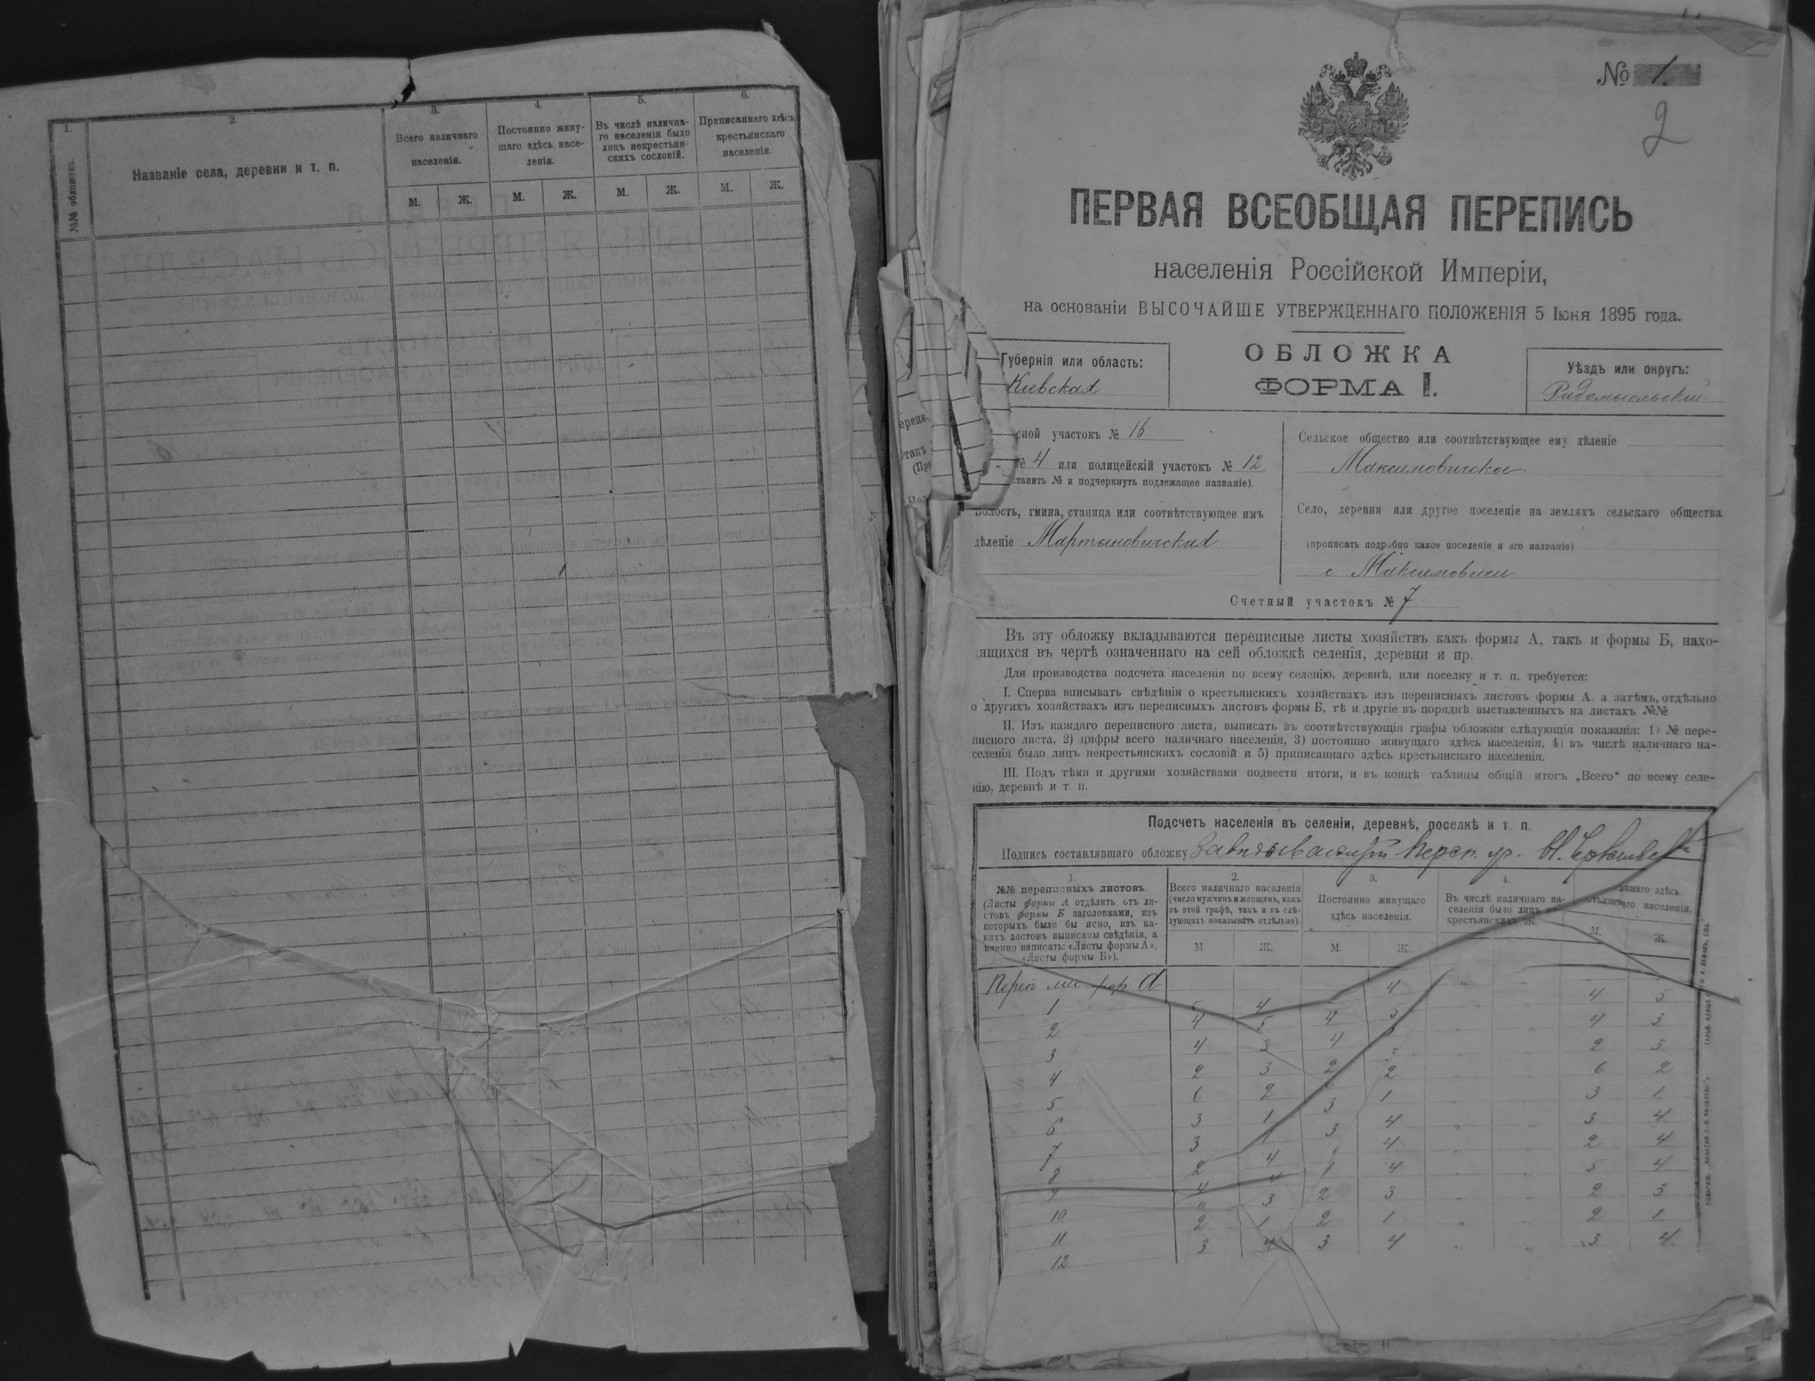 1.
№№ обложекъ.
2.
Названіе села, деревни и т. п.
3.
Всего наличнаго
населенія.
М.
Ж.
4.
Постоянно живу-
щаго здѣсь насе-
ленія.
М.
Ж.
5.
Въ числѣ налична-
го населенія было
лицъ некрестьян-
скихъ сословій.
М.
Ж.
6.
Приписаннаго здѣсь
крестьянскаго
населенія.
М.
Ж.
№ 1.
2
ПЕРВАЯ ВСЕОБЩАЯ ПЕРЕПИСЬ
населенія Россійской Имперіи,
на основаніи ВЫСОЧАЙШЕ УТВЕРЖДЕННАГО ПОЛОЖЕНІЯ 5 Іюня 1895 года.
Губернія или область:
Кіевская
ОБЛОЖКА
ФОРМА I.
Уѣздъ или округъ:
Радомысльскій
сной участокъ № 16
№ 4 или полицейскій участокъ № 12
ставить № и подчеркнуть подлежащее названіе).
Волость, гмина, станица или соотвѣтствующее имъ
дѣленіе Мартыновичская
Сельское общество или соотвѣтствующее ему дѣленіе
Максимовичское
Село, деревня или другое поселеніе на земляхъ сельскаго общества
(прописать подробно какое поселеніе и его названіе)
с. Максимовичи
Счетный участокъ № 7
Въ эту обложку вкладываются переписные листы хозяйствъ какъ формы А, такъ и формы Б, нахо-
ящихся въ чертѣ означеннаго на сей обложкѣ селенія, деревни и пр.
Для производства подсчета населенія по всему селенію, деревнѣ, или поселку и т. п. требуется:
I. Сперва вписывать свѣдѣнія о крестьянскихъ хозяйствахъ изъ переписныхъ листовъ формы А. а затѣмъ, отдѣльно
о другихъ хозяйствахъ изъ переписныхъ листовъ формы Б, тѣ и другіе въ порядкѣ выставленныхъ на листахъ №№
II. Изъ каждаго переписного листа, выписать въ соотвѣтствующія графы обложки слѣдующія показанія: 1) № пере-
писного листа, 2) цифры всего наличнаго населенія, 3) постоянно живущаго здѣсь населенія, 4) въ числѣ наличнаго на-
селенія было лицъ некрестьянскихъ сословій и 5) приписаннаго здѣсь крестьянскаго населенія.
III. Подъ тѣми и другими хозяйствами подвести итоги, и въ концѣ таблицы общій итогъ „Всего“ по всему селе-
нію, деревнѣ и т. п.
Подсчетъ населенія въ селеніи, деревнѣ, поселкѣ и т. п.
Подпись составлявшаго обложку Завѣдывающій Переп. уч. Н.
1.
№№ переписныхъ листовъ.
(Листы формы А отдѣлить отъ ли-
стовъ формы Б заголовками, изъ
которыхъ было бы ясно, изъ ка-
кихъ листовъ выписаны свѣдѣнія, а
именно написать: «Листы формы А»,
«Листы формы Б»).
2.
Всего наличнаго населенія
(число мужчинъ и женщинъ, какъ
въ этой графѣ, такъ и въ слѣ-
дующихъ показывать отдѣльно).
М
Ж.
3.
Постоянно живущаго
здѣсь населенія.
М.
Ж.
4.
Въ числѣ наличнаго на-
селенія было лицъ
крестьянскихъ
Ж.
ннаго здѣсь
стьянскаго населенія.
М.
Ж.
Переп. лис. фор. А
1 5 4 5 4 4 5
2 4 5 4 5 4 3
3 4 3 4 2 3
4 2 3 2 6 2
5 6 2 2 3 1
6 3 1 3 1 3 4
7 3 1 3 4 2 4
8 2 4 4 5 4
9 4 4 1 4 2 3
10 2 3 2 3 2 1
11 2 1 2 1 3 4
12 3 4 3 4